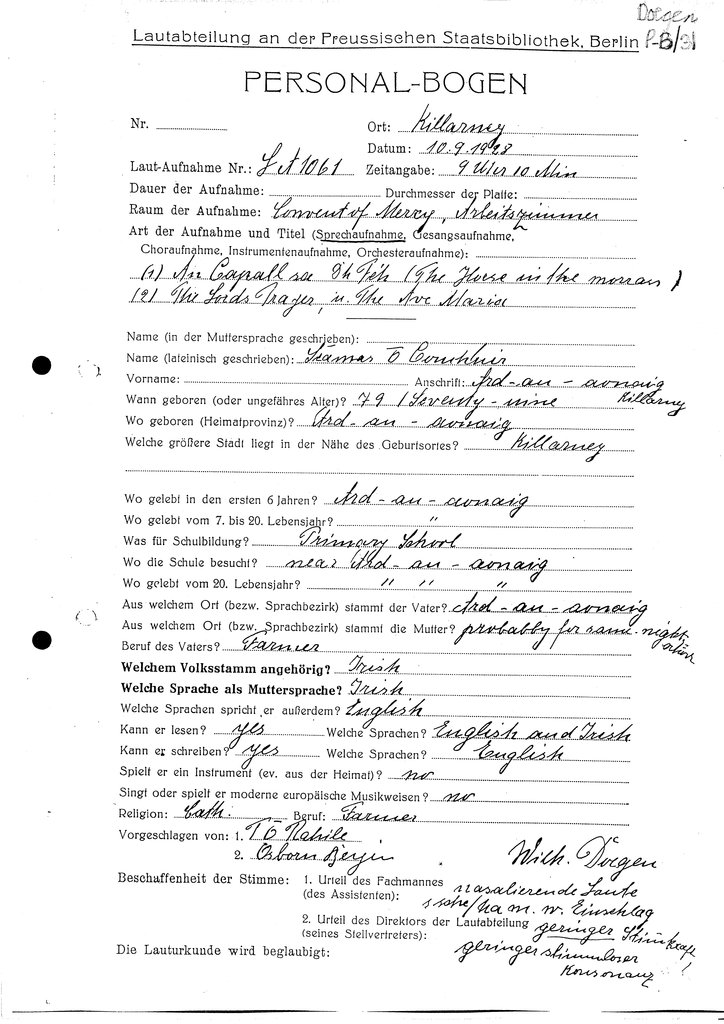 Doegen
Lautabteilung an der Preussischen Staatsbibliothek, Berlin P-B/31
PERSONAL-BOGEN
Nr.
Ort: Killarney
Datum: 10.9.1928
Laut-Aufnahme Nr.: LA 1061 Zeitangabe: 9 Uhr 10 Min
Dauer der Aufnahme: Durchmesser der Platte:
Raum der Aufnahme: Convent of Mercy, Arbeitszimmer
Art der Aufnahme und Titel (Sprechaufnahme, Gesangsaufnahme,
Choraufnahme, Instrumentenaufnahme, Orchesteraufnahme):
(1) An Capall sa (The Horse in the )
(2) The Lords Prayer, u. The Ave Maria
Name (in der Muttersprache geschrieben):
Name (lateinisch geschrieben): Seamas Ó
Vorname: Anschrift: Ard-an-aonaig
Killarny
Wann geboren (oder ungefähres Alter)? 79 / Seventy-nine
Wo geboren (Heimatprovinz)? Ard-an-aonaig
Welche größere Stadt liegt in der Nähe des Geburtsortes? Killarney
Wo gelebt in den ersten 6 Jahren? Ard-an-aonaig
Wo gelebt vom 7. bis 20. Lebensjahr? "
Was für Schulbildung? Primary School
Wo die Schule besucht? near Ard-an-aonaig
Wo gelebt vom 20. Lebensjahr? " " "
Aus welchem Ort (bezw. Sprachbezirk) stammt der Vater? Ard-an-aonaig
Aus welchem Ort (bzw. Sprachbezirk) stammt die Mutter? probably for same
Beruf des Vaters? Farmer
Welchem Volksstamm angehörig? Irish
Welche Sprache als Muttersprache? Irish
Welche Sprachen spricht er außerdem? English
Kann er lesen? yes Welche Sprachen? English and Irish
Kann er schreiben? yes Welche Sprachen? English
Spielt er ein Instrument (ev. aus der Heimat)? no
Singt oder spielt er moderne europäische Musikweisen? no
Religion: Cath. Beruf: Farmer
Vorgeschlagen von: 1. T Ó
2. Osborn Bergin
Wilh. Doegen
Beschaffenheit der Stimme: 1. Urteil des Fachmannes
(des Assistenten): nasalierende Laute
m. w. Einschlag
2. Urteil des Direktors der Lautabteilung
(seines Stellvertreters): geringer Stimkraft!
Die Lauturkunde wird beglaubigt: geringer stimmloser
Konsonanz